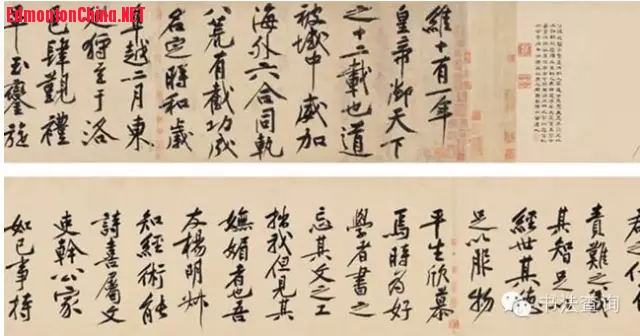 EdmontonChina.NET
維十有一年
皇帝御天下
之十二載也道
被域中威加
海外六合同軌
八荒有截功成
名定時和歲
阜越二月東
巡狩至于洛
邑肆覲禮
畢玉鑾旋
君之
責難之
其智足
經世其德
足以服物
平生欣慕
焉時為好
學者書之
忘其文之工
拙我但見其
嫵媚者也吾
友楊明叔
知經術能
詩喜屬文
吏幹公家
如己事持
书法查询